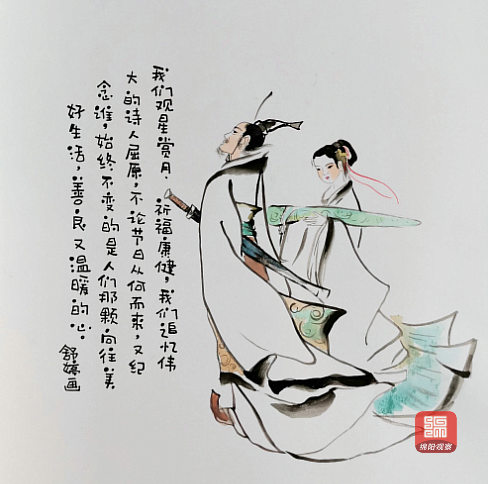 我们观星赏月，祈福康健，我们追忆伟
大的诗人屈原，不论节日从何而来，又纪
念谁，始终不变的是人们那颗向往美
好生活，善良又温暖的心。
舒婷画
绵阳观察